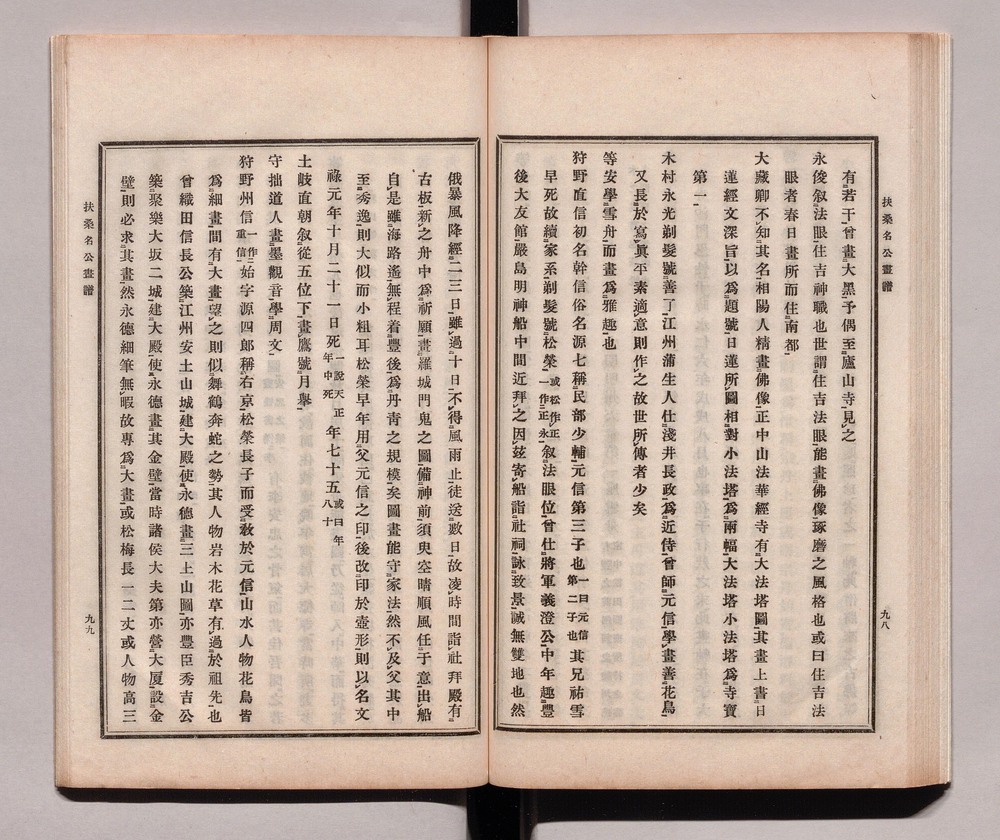 扶桑名公畫譜
九八
有若干曾畫大黑予偶至廬山寺見之
永俊叙法眼住吉神職也世謂住吉法眼能畫佛像琢磨之風格也或曰住吉法
眼者春日畫所而住南都
大藏卿不知其名相陽人精畫佛像正中山法華經寺有大法塔圖其畫上書日
蓮經文深旨以爲題號日蓮所圖相對小法塔爲兩幅大法塔小法塔爲寺寶
第一
木村永光剃髮號善了江州蒲生人仕淺井長政爲近侍曾師元信學畫善花鳥
又長於寫眞平素適意則作之故世所傳者少矣
等安學雪舟而畫爲雅趣也
狩野直信初名幹信俗名源七稱民部少輔元信第三子也一曰元信第二子也其兄祐雪
早死故續家系剃髮號松榮或松作正一作正永叙法眼位曾仕將軍義澄公中年趣豐
後大友館嚴島明神船中間近拜之因玆寄船詣社祠詠致景誠無雙地也然
俄暴風降經二三日雖過十日不得風雨止徒送數日故凌時間詣社拜殿有
古板新之舟中爲祈願畫羅城門鬼之圖備神前須臾空晴順風任于意出船
自是雖海路遙無程着豐後爲丹靑之規模矣圖畫能守家法然不及父其中
至秀逸則大似而小粗耳松榮早年用父元信之印後改印於壺形則以名文
祿元年十月二十一日死一說天正年中死年七十五或曰年八十
土岐直朝叙從五位下畫鷹號月擧
守拙道人畫墨觀音學周文
狩野州信一作重信始字源四郎稱右京松榮長子而受敎於元信山水人物花鳥皆
爲細畫間有大畫望之則似舞鶴奔蛇之勢其人物岩木花草有過於祖先也
曾織田信長公築江州安土山城建大殿使永德畫三上山圖亦豐臣秀吉公
築聚樂大坂二城建大殿使永德畫其金壁當時諸侯大夫第亦營大厦設金
壁則必求其畫然永德細筆無暇故專爲大畫或松梅長一二丈或人物高三
扶桑名公畫譜
九九